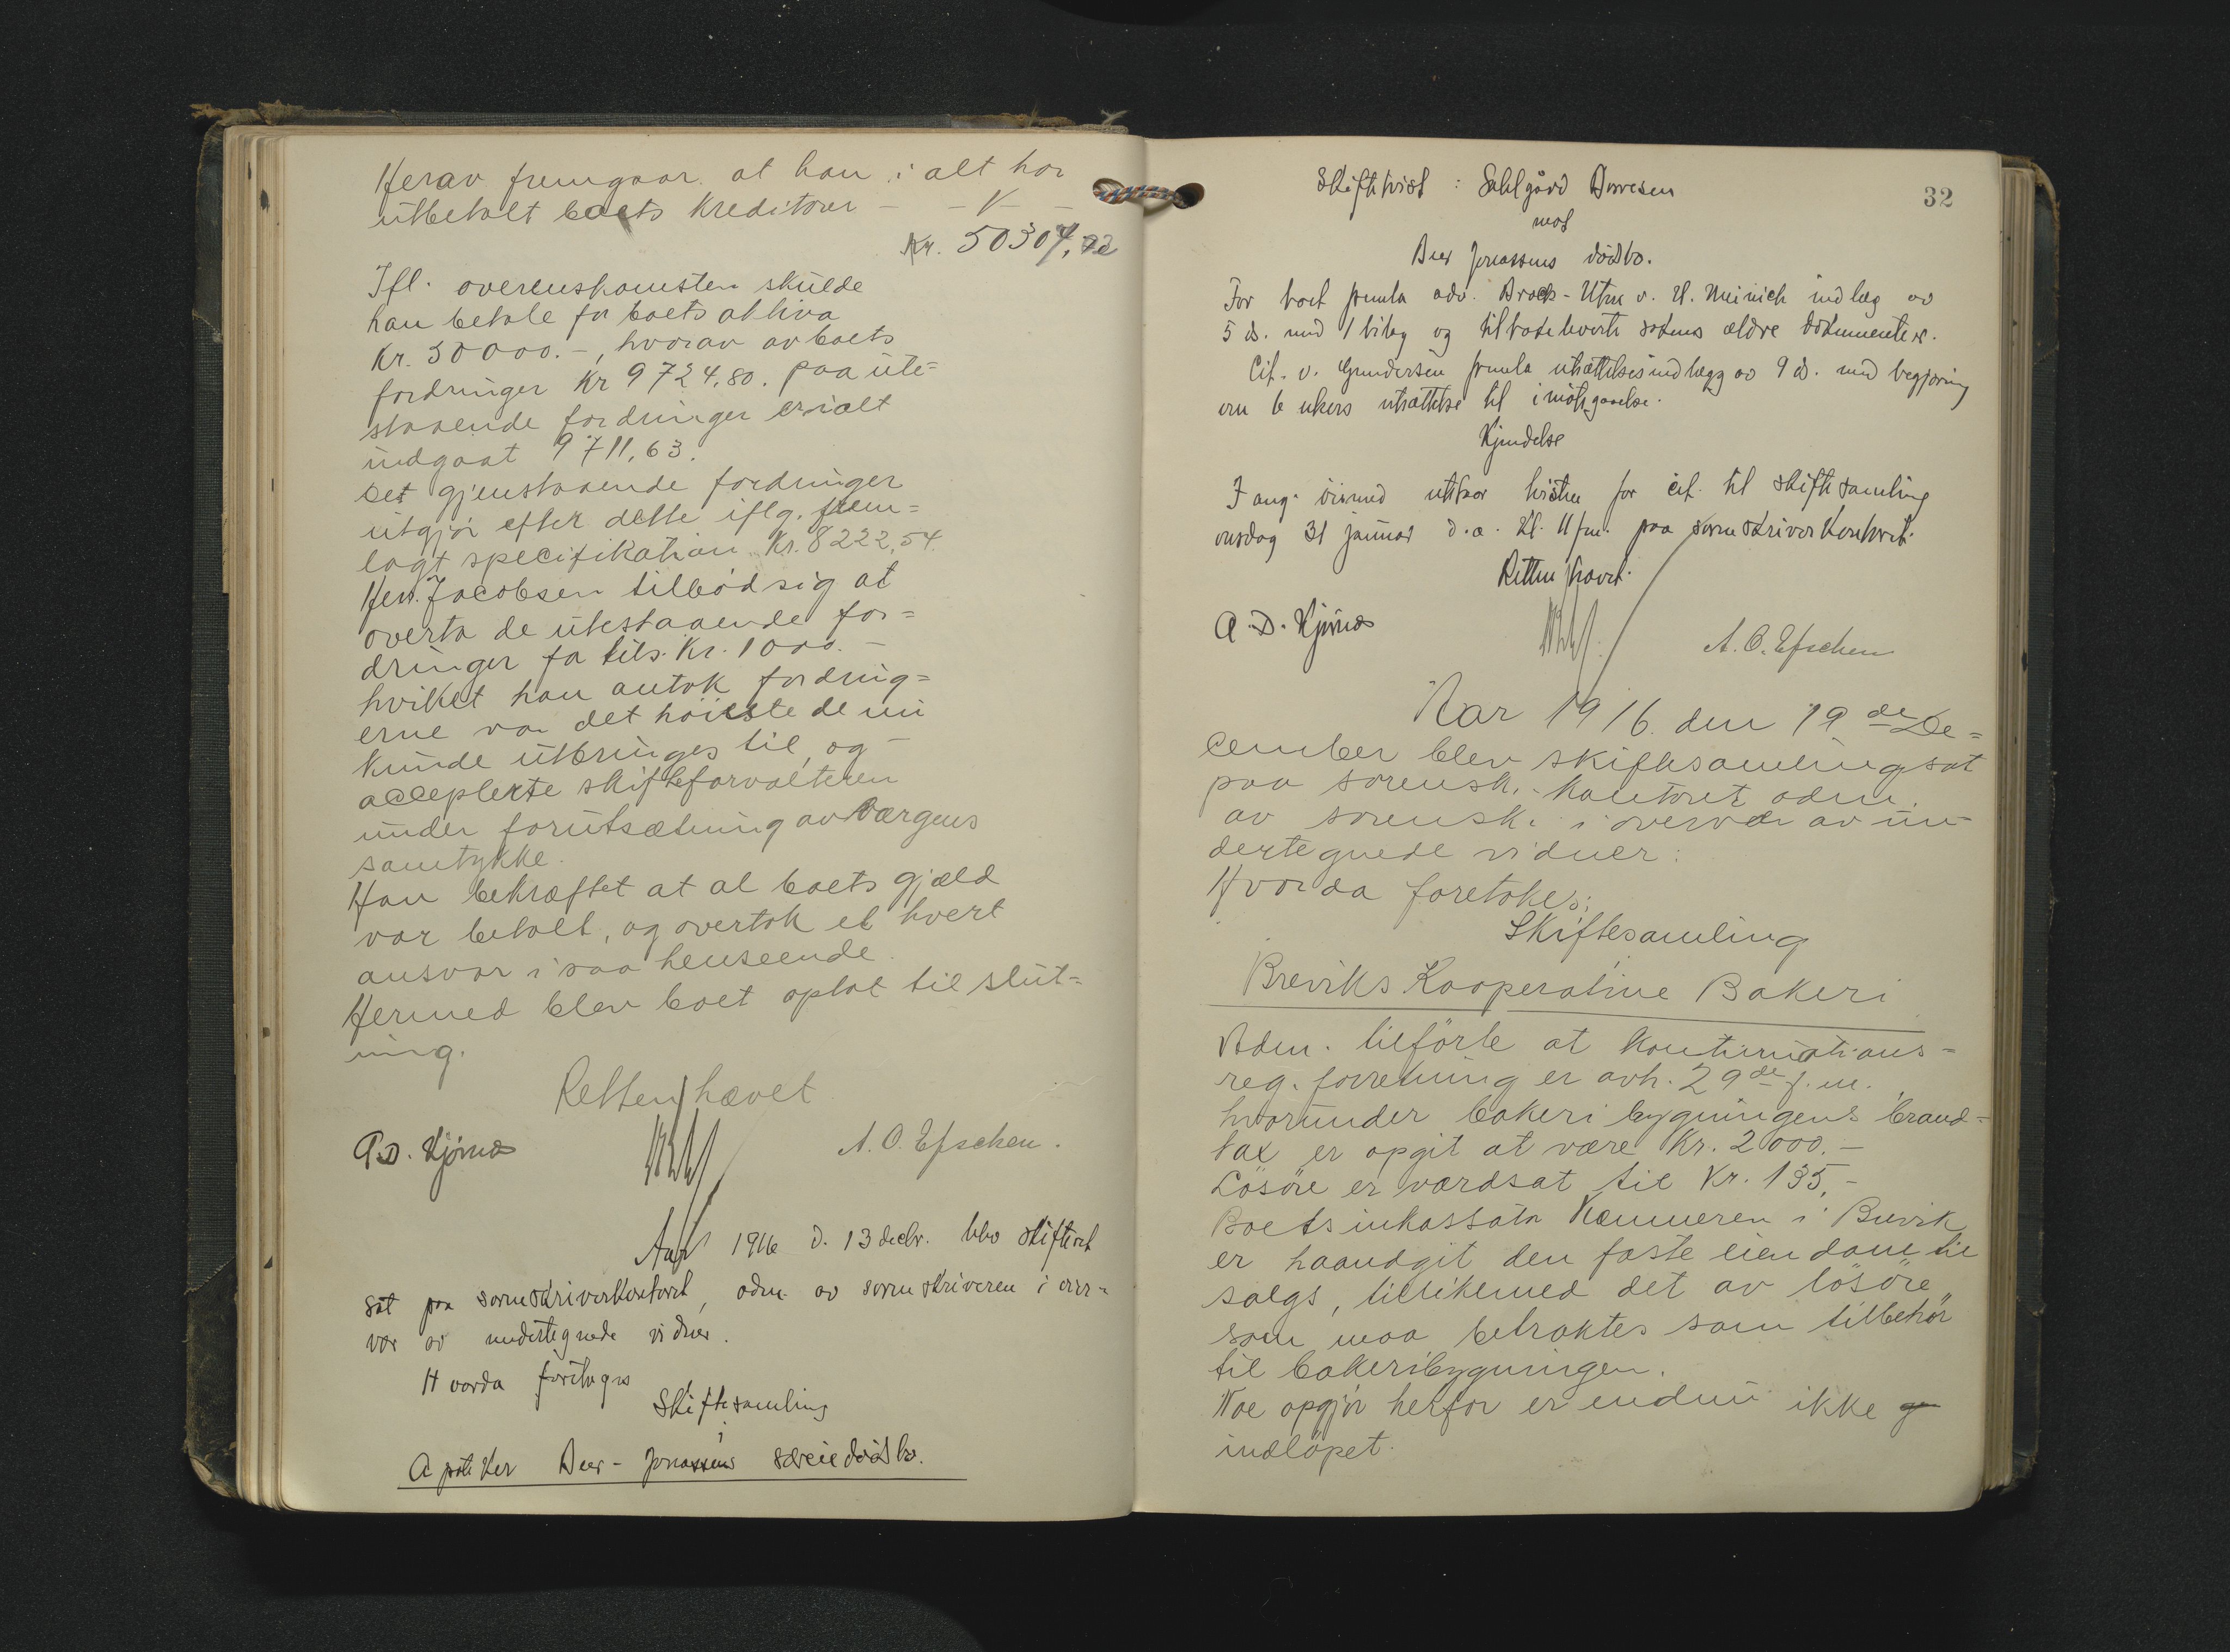 Herav fremgaar at han i alt har
utbetalt boets kreditorer - - V -
Kr. 50304,72
Ifl. overenskomsten skulde
han betale for boets aktiva
Kr. 30000.-, hvorav av boets
fordringer Kr 9724,80. paa ute=
staaende fordringer er ialt
indgaat 9711,63.
Det gjenstaaende fordringer
utgjör efter dette iflg. frem=
lagt specifikation Kr. 8222,54.
Herr. Jacobsen tilböd sig at
overta de utestaaende for=
dringer for tils. Kr. 1000.-
hvilket han antok fordring=
erne var det höieste de nu
kunde utbringes til, og -
accepterte skifteforvalteren
under forutsætning av værgens
samtykke.
Han bekræftet at al boets gjæld
var betalt, og overtok et hvert
ansvar i saa henseende.
Hermed blev boet optat til slut=
ning.
Retten hævet
A.D. Kjørnæs
A. O. Efschen.
Aar 1916 d. 13 decbr. blev skifteret
sat paa sorenskriverkontoret, adm. av sorenskriveren i over=
vær av undertegnede vidner.
Hvorda foretoges
Skiftesamling
i
Apoteker Beer-Jonassens særeiedødsbo.
32
Skiftetvist: Sahlgård Anresen
mot
Beer Jonassens dödsbo.
For boet fremla adv. Brock-Utne v. H. Meinich indlæg av
5 ds. med 1 bilag og tilbakeleverte sakens ældre dokumenter.
Cit. v. Gundersen fremla utsættelsesindlægg av 9 ds. med begjæring
om 6 ukers utsættelse til imötegaaelse.
Kjendelse
I ang. öiemed utstaar tvisten for cit. til skiftesamling
onsdag 31 januar d.a. kl. 11 fm. paa sorenskriverkontoret.
Retten hævet.
A.D. Kjørnæs
A. O. Efschen
Aar 1916. den 19de De=
cember blev skiftesamling sat
paa sorensk.-kontoret adm.
av sorensk. i overvær av un-
dertegnede vidner:
Hvorda foretokes:
Skiftesamling
i
Breviks Kooperative Bakeri
Adm. tilförte at kontinuations=
reg. forretning er avh. 29de f.m.,
hvorunder bakeribygningens brand=
tax er opgit at være Kr. 2000.-
Lösöre er værdsat til Kr. 135,-
Boets inkassator Kæmneren i Brevik
er haandgit den faste eiendom til
salgs, tillikemed det av lösöre
som maa betraktes som tilbehör
til bakeribygningen.
Noe opgjör herfor er endnu ikke
indlöpet.